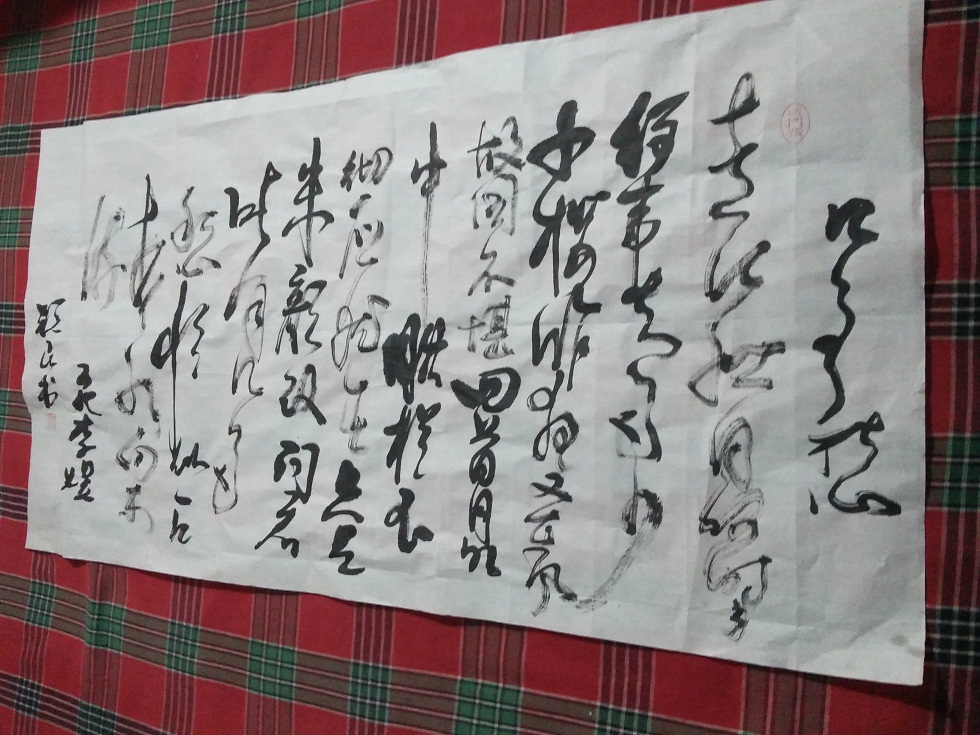 春花秋月何时了
往事知多少
小楼昨夜又东风
故国不堪回首月明
中雕栏玉
砌应犹在只是
朱颜改问君
能有几多
愁恰似一江
春水向东
流
五代李煜
书